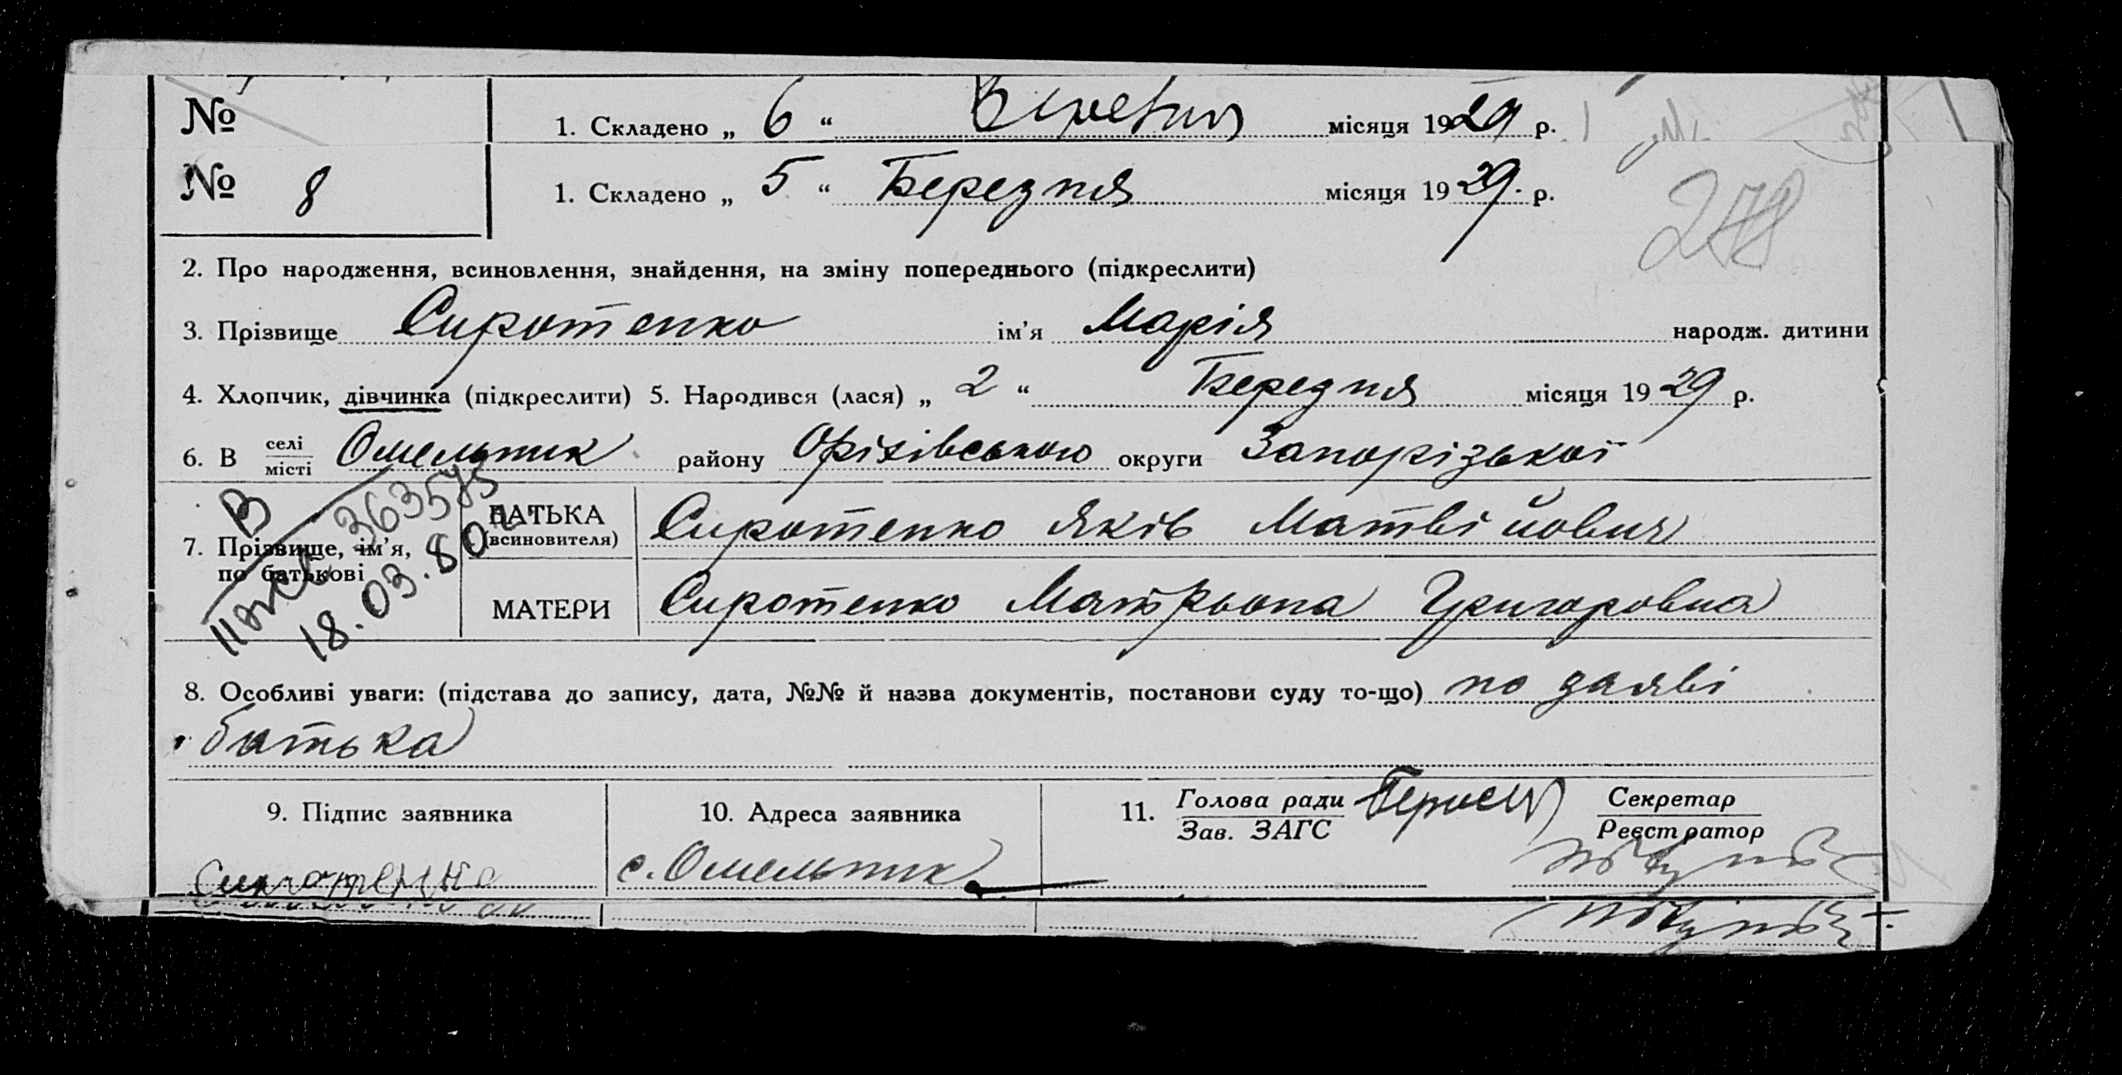 №
1. Складено „ 6 “ місяця 1929 р.
№ 8
1. Складено „ 5 “ Березня місяця 1929. р.
278
2. Про народження, всиновлення, знайдення, на зміну попереднього (підкреслити)
3. Прізвище Сиротенко ім’я Марія народж. дитини
4. Хлопчик, дівчинка (підкреслити) 5. Народився (лася) „ 2 “ Березня місяця 1929 р.
6. В селі місті Омельник району Оріхівського округи Запорізької
В
ІІ ЖС 363575
18.03.80
7. Прізвище, ім’я, по батькові
БАТЬКА (всиновителя) Сиротенко Яків Матвійович
МАТЕРИ Сиротенко Матрьона Григоровна
8. Особливі уваги: (підстава до запису, дата, №№ й назва документів, постанови суду то-що) по заяві
батька
9. Підпис заявника 10. Адреса заявника 11. Голова ради Зав. ЗАГС Секретар Реєстратор
Сиротенко с. Омельник